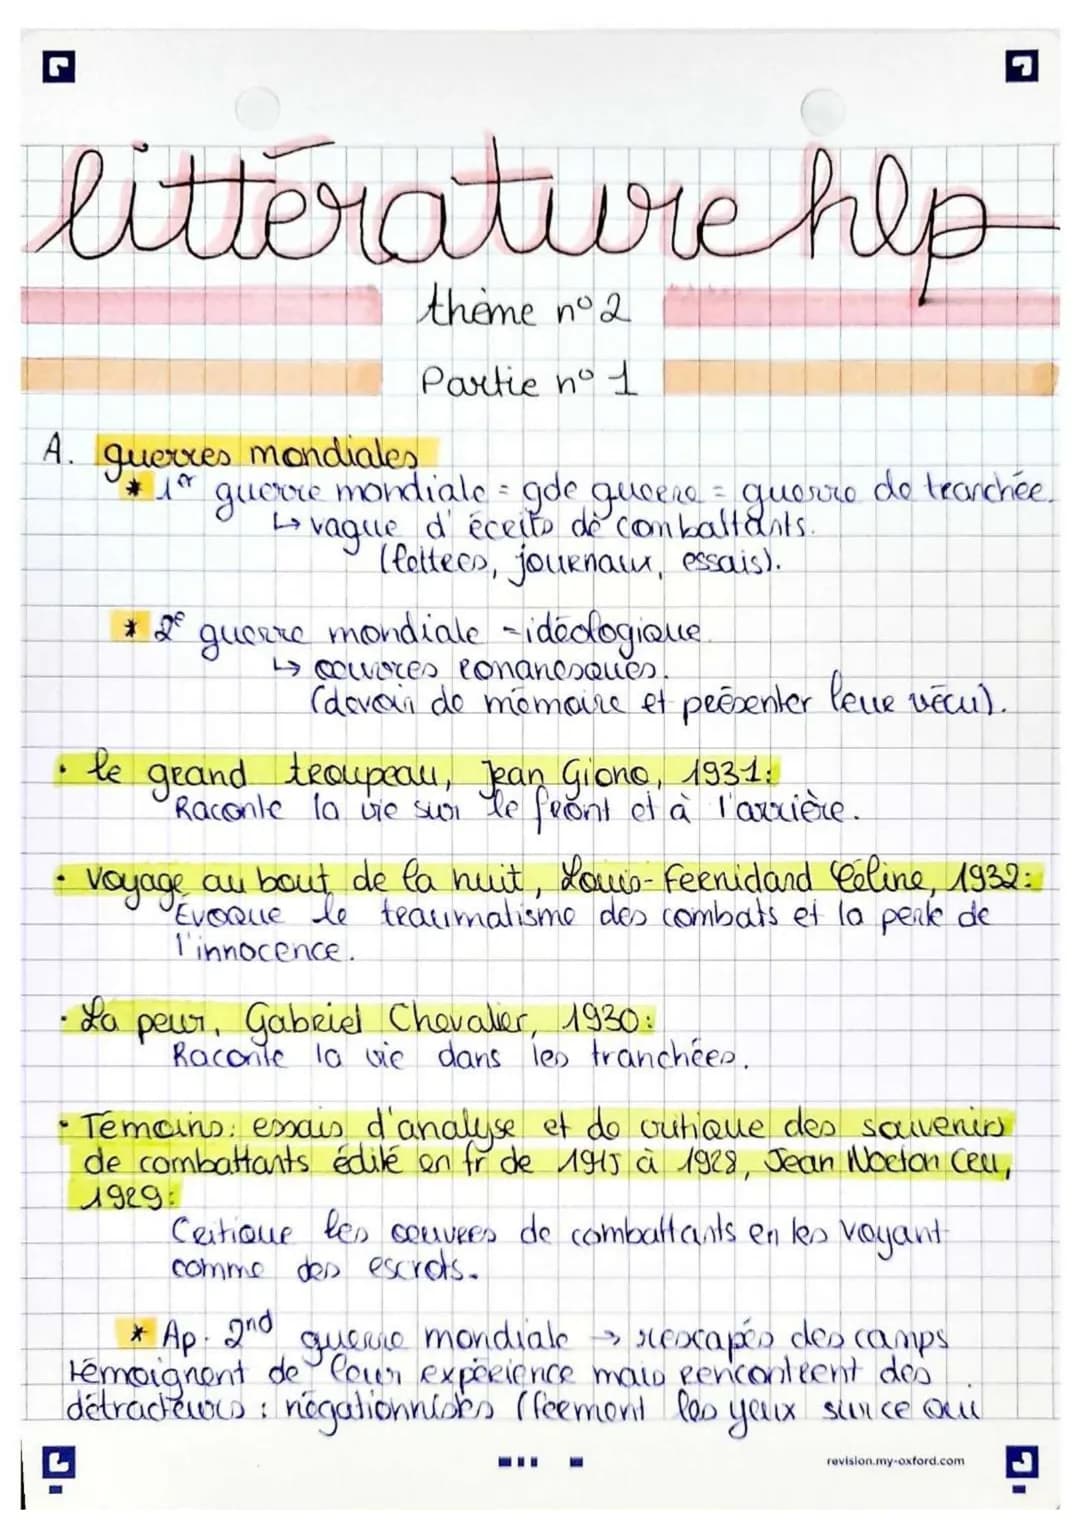 littérature hlp
thème n°2
Partie n° 1
A. guerres mondiales
* 1er guerre mondiale = gde guerre = guerre de tranchée.
↳ vague d'écrits de combattants.
(lettres, journaux, essais).
* 2e guerre mondiale = idéologique
↳ œuvres romanesques.
(devoir de mémoire et présenter leur vécu).
• le grand troupeau, Jean Giono, 1931:
Raconte la vie sur le front et à l'arrière.
• Voyage au bout de la nuit, Louis-Fernidand Céline, 1932:
Evoque le traumatisme des combats et la perte de
l'innocence.
• La peur, Gabriel Chevalier, 1930:
Raconte la vie dans les tranchées.
• Témoins: essais d'analyse et de critique des souvenirs
de combattants édité en fr de 1915 à 1928, Jean Norton Cru,
1929:
Critique les œuvres de combattants en les voyant
comme des escrots.
* Ap. 2nd guerre mondiale → rescapés des camps
témoignent de leur expérience mais rencontrent des
détracteurs : négationnistes (ferment les yeux sur ce qui
revision.my-oxford.com